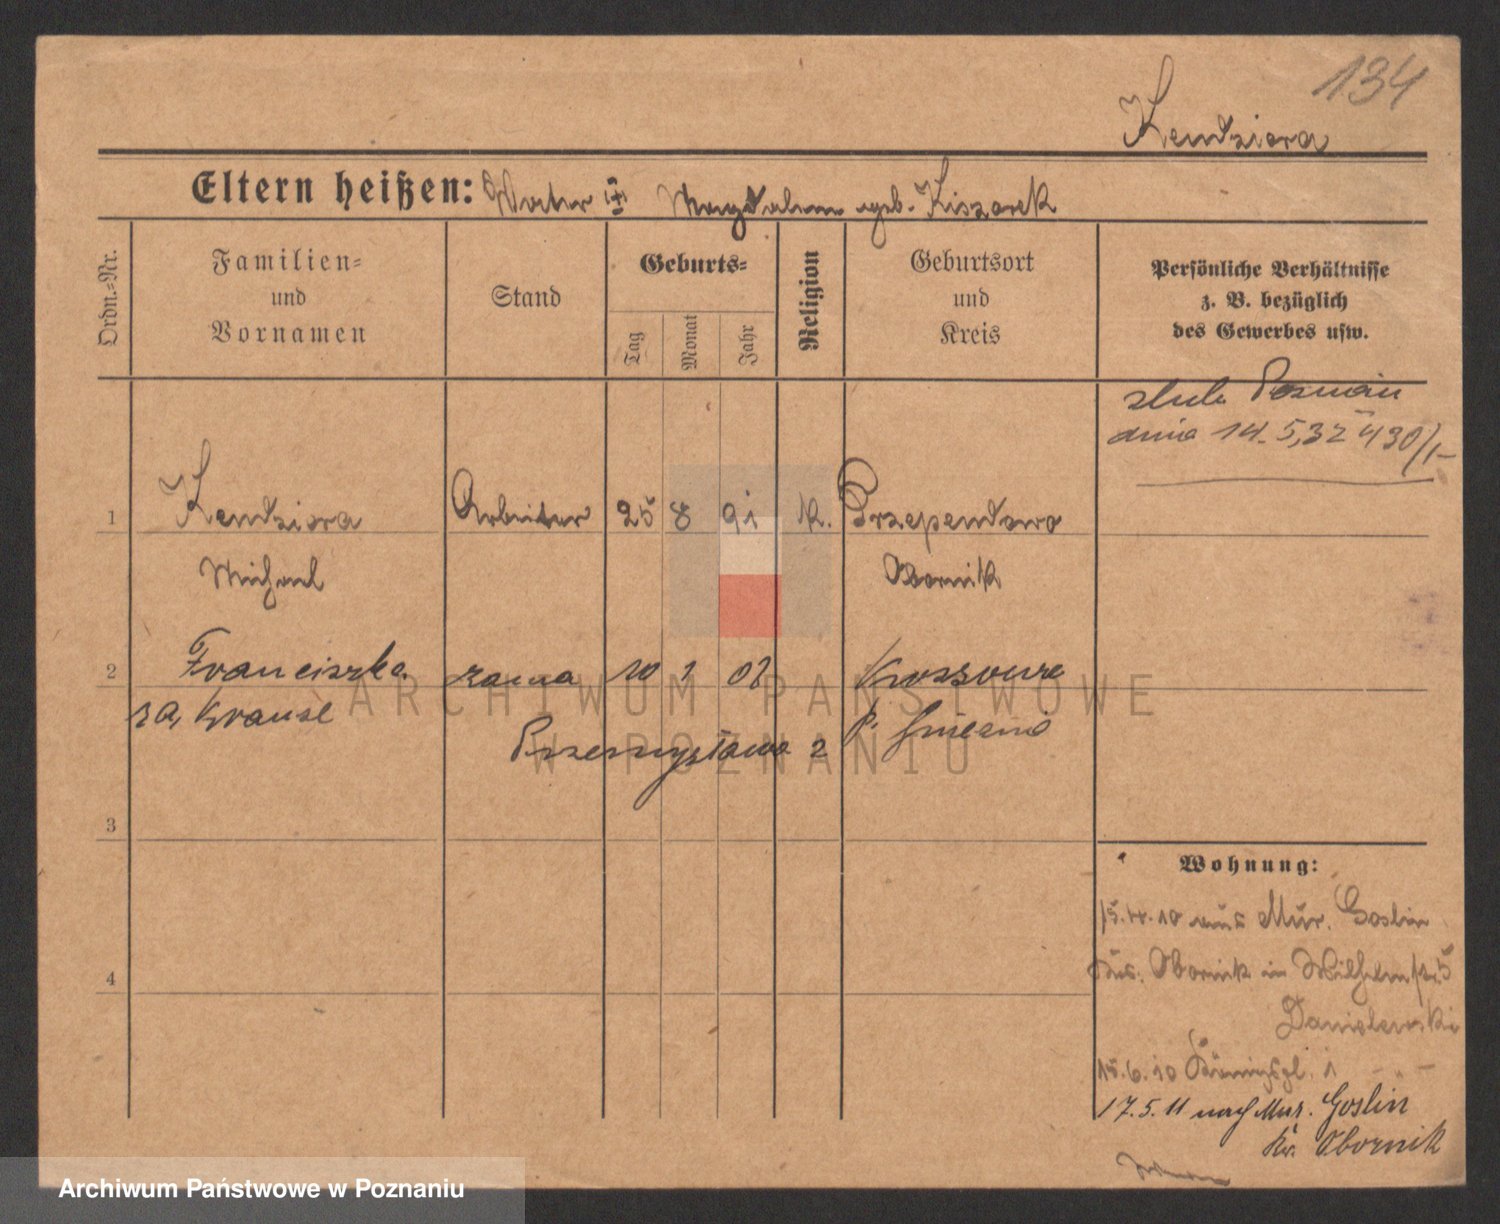 134
Kendziora
Eltern heißen: Magdalena geb. Kiszarek
Ordn.-Nr.
Familien-
und
Vornamen
Stand
Geburts-
Tag
Monat
Jahr
Religion
Geburtsort
und
Kreis
Persönliche Verhältnisse
z. B. bezüglich
des Gewerbes usw.
ślub Poznań
dnia 14.5.32 430/
1 Kendziora Arbeiter 25 8 91 k. Przependowo
Michael Obornik
2 Franciszka zona 10 1 02
za Krause p. Gniezno
Przemysłowa 2
3
4
Wohnung:
15.4.10 aus Mur. Goslin
Krs. Obornik in Wilhelmstr. 5
Danielewski
15.6.10 Königspl. 1 - " -
17.5.11 nach Mur. Goslin
Kr. Obornik
ARCHIWUM PAŃSTWOWE
W POZNANIU
Archiwum Państwowe w Poznaniu